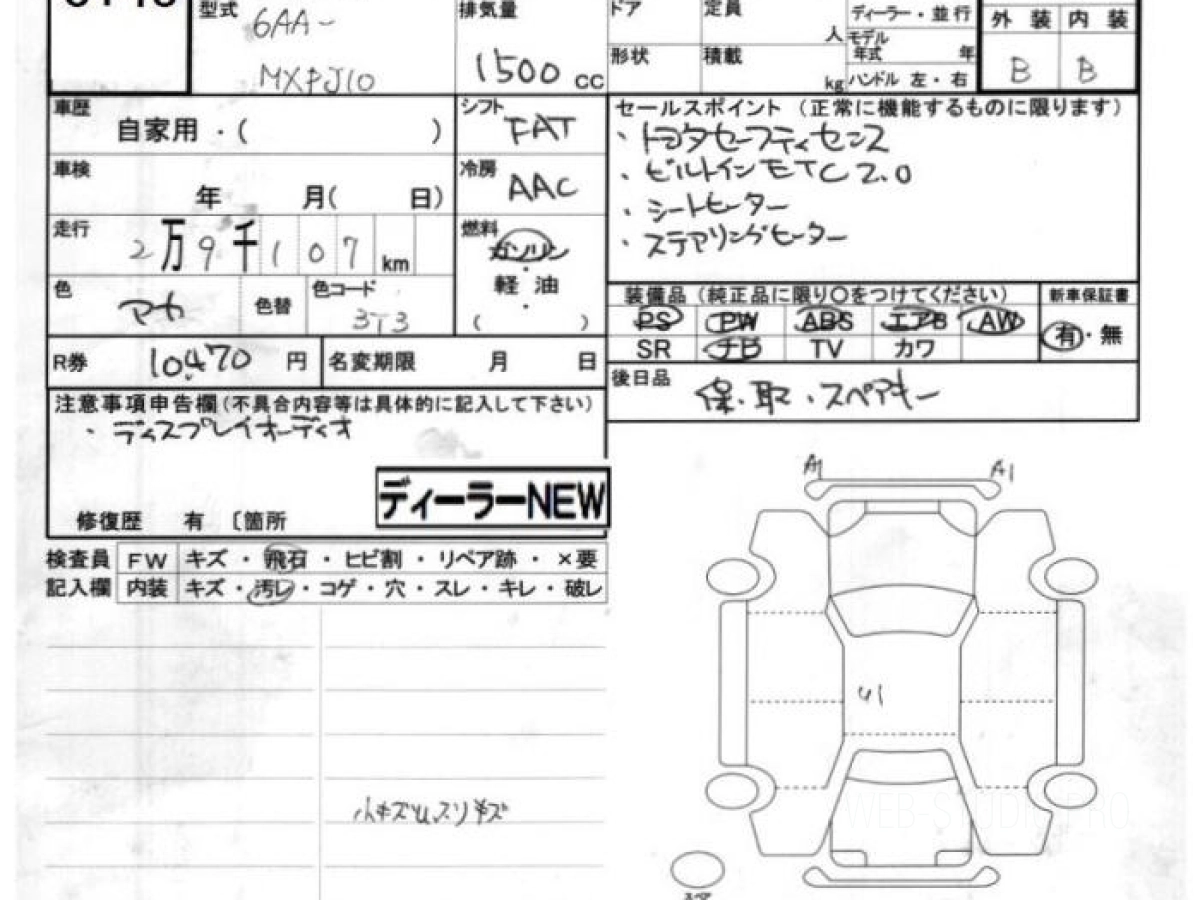 型式 6AA-
MXPJ10
排気量
1500 cc
ドア
定員
人
形状
積載
kg
ディーラー・並行
モデル年式 年
ハンドル 左・右
外装 内装
B B
車歴
自家用・( )
シフト
FAT
セールスポイント (正常に機能するものに限ります)
・トヨタセーフティセンス
・ビルトインETC2.0
・シートヒーター
・ステアリングヒーター
車検
年 月( 日)
冷房
AAC
走行
2万9千107 km
燃料
ガソリン
・
軽油
・
( )
色
色替
色コード
3T3
装備品 (純正品に限り〇をつけてください)
新車保証書
PS PW ABS エアB AW
有・無
SR ナビ TV カワ
R券 10,470 円
名変期限 月 日
後日品
保・取・スペアキー
注意事項申告欄(不具合内容等は具体的に記入して下さい)
・ディスプレイオーディオ
ディーラーNEW
修復歴 有 〔箇所
検査員
記入欄
FW キズ・飛石・ヒビ割・リペア跡・×要
内装 キズ・汚レ・コゲ・穴・スレ・キレ・破レ
A1 A1
U1
小キズUスリキズ
WEB-STUDIO.PRO